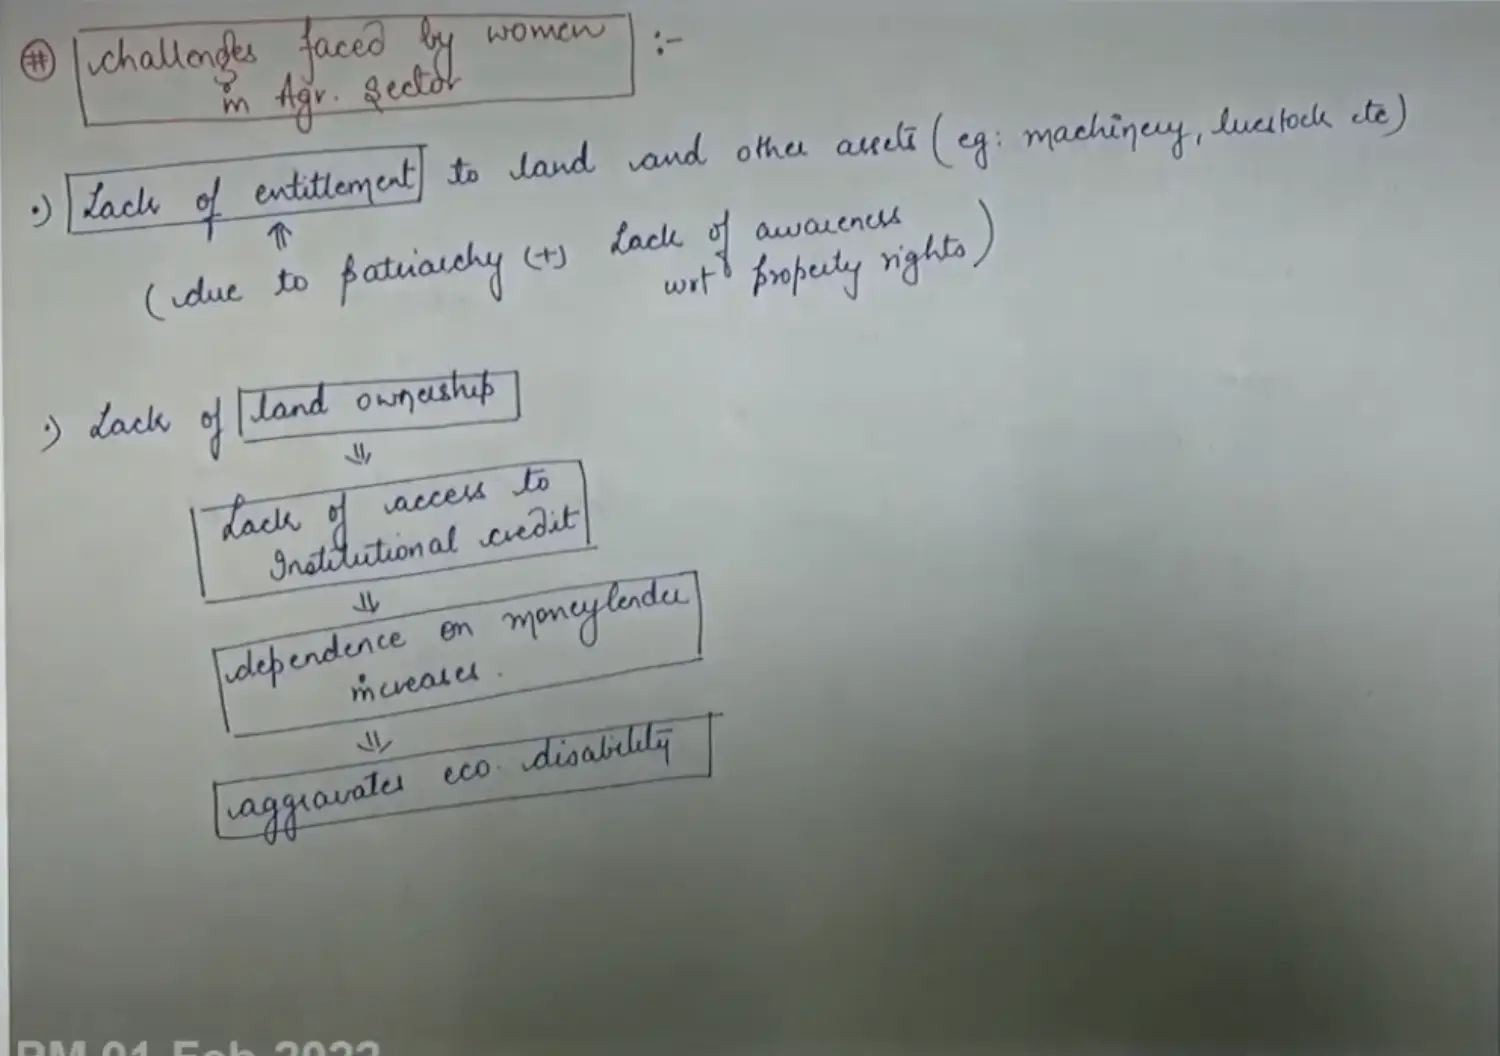 # challenges faced by women :-
in Agr. Sector
•) Lack of entitlement to land and other assets (eg: machinery, livestock etc)
⇑
(due to patriarchy (+) Lack of awareness
wrt property rights)
•) Lack of land ownership
⇓
Lack of access to
Institutional credit
⇓
dependence on moneylender
increases.
⇓
aggravates eco. disability
PM 01 Feb 2022